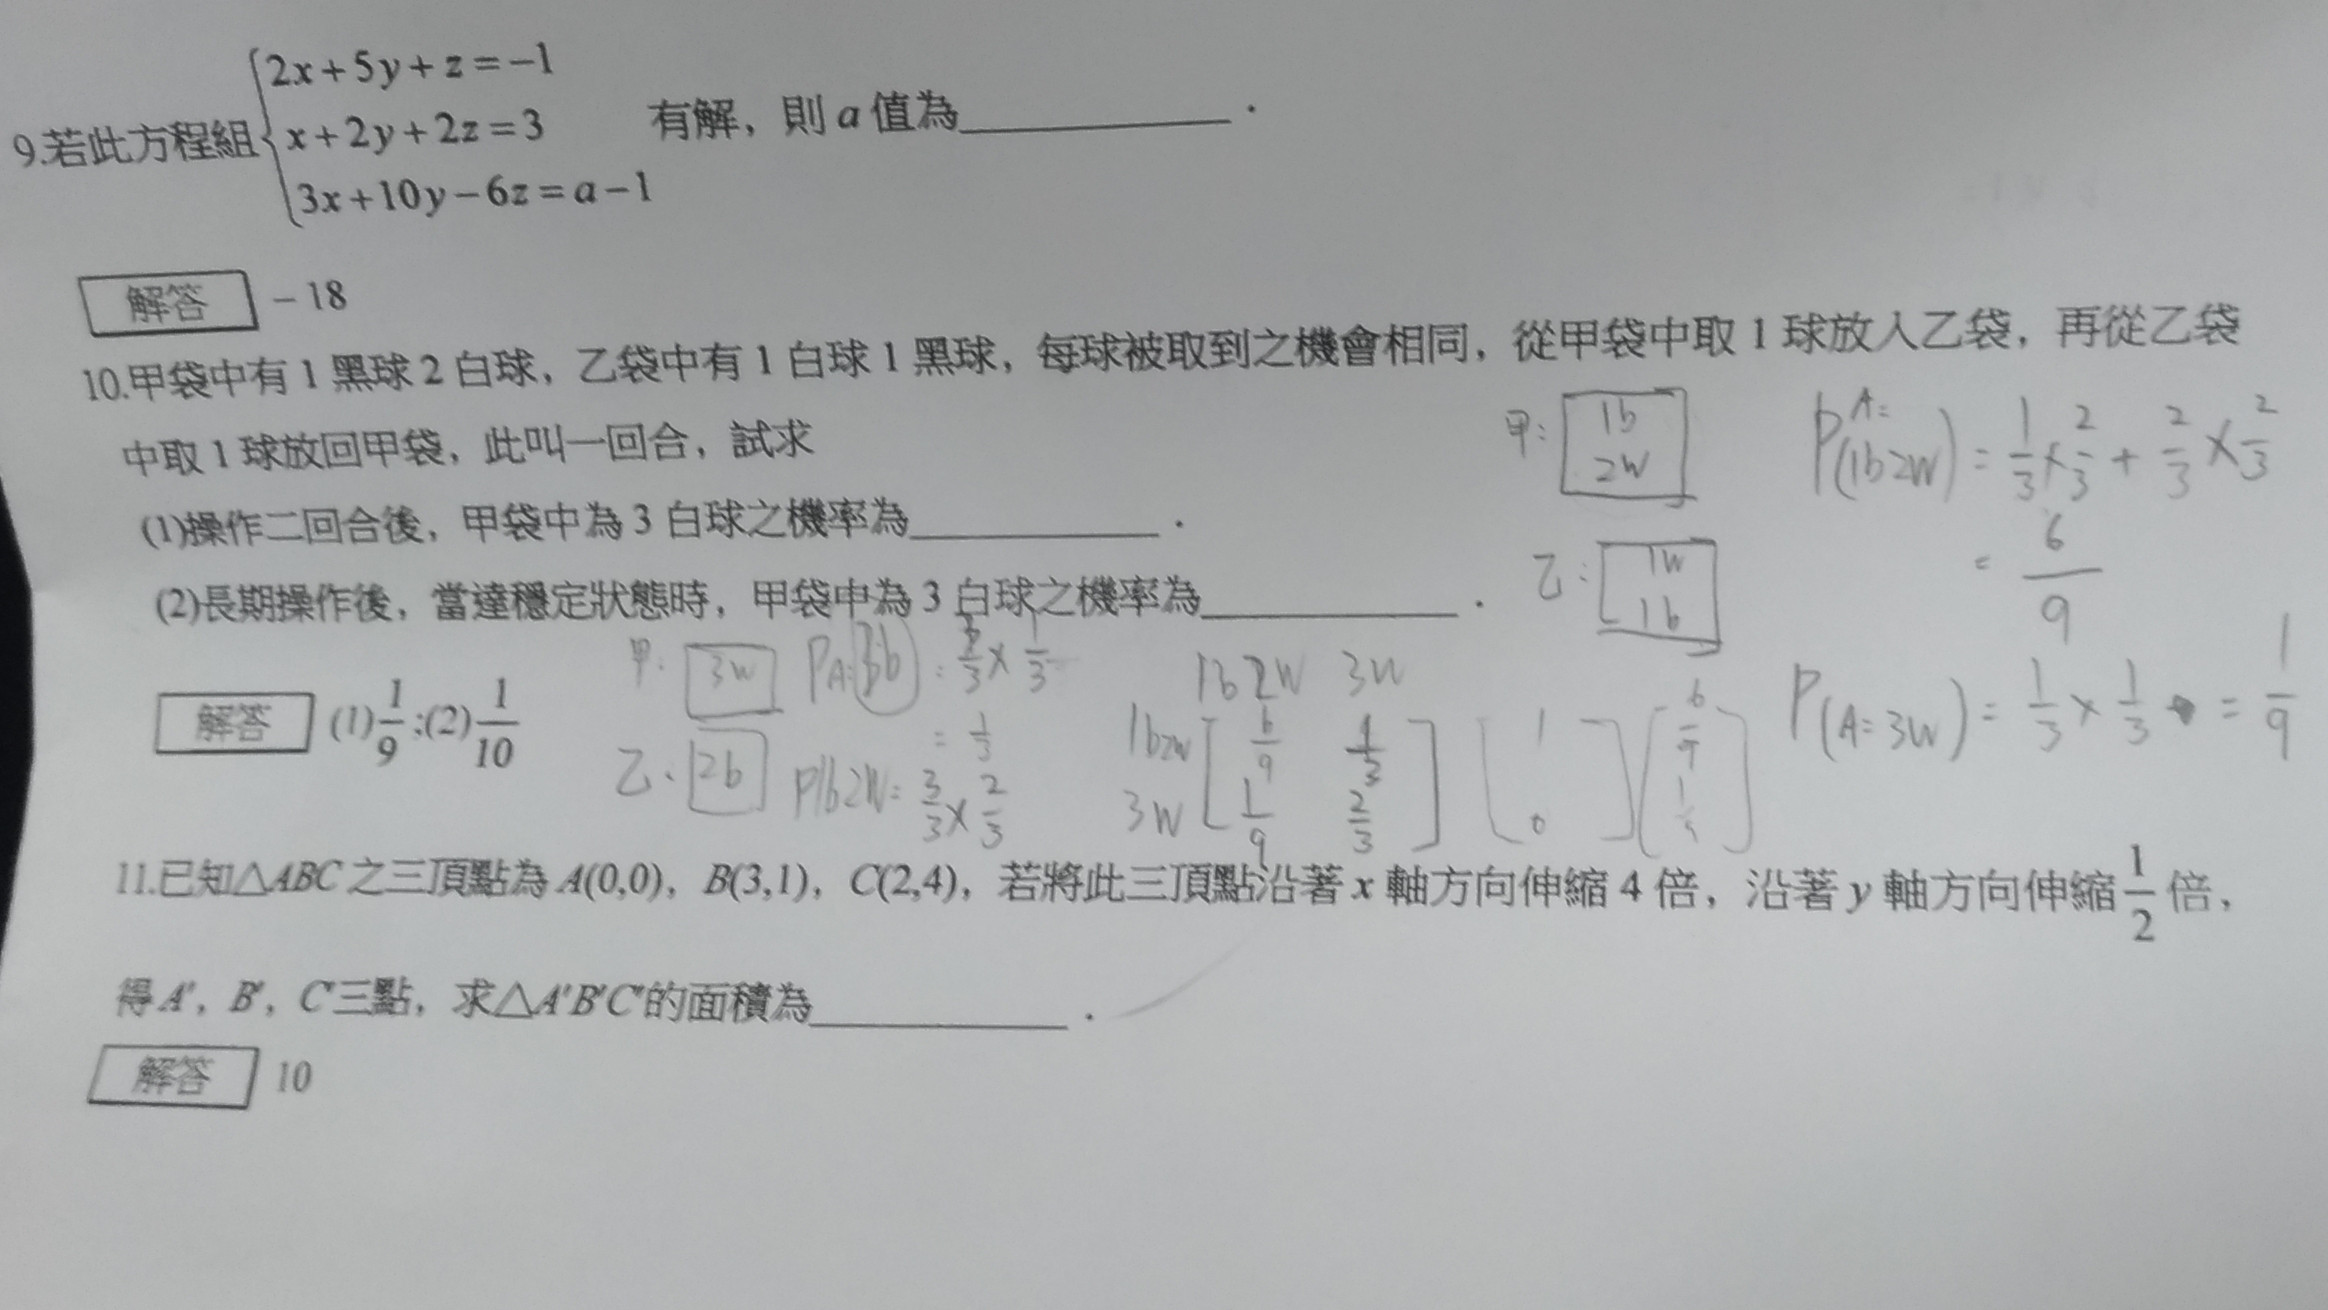 2x+5y+z=-1
9.若此方程組 x+2y+2z=3 有解，則 a 值為____________．
3x+10y-6z=a-1
解答 -18
10.甲袋中有 1 黑球 2 白球，乙袋中有 1 白球 1 黑球，每球被取到之機會相同，從甲袋中取 1 球放入乙袋，再從乙袋
中取 1 球放回甲袋，此叫一回合，試求
甲: 1b 2w
P(A: 1b2w) = 1/3 × 2/3 + 2/3 × 2/3
= 6/9
(1)操作二回合後，甲袋中為 3 白球之機率為____________．
乙: 1w 1b
(2)長期操作後，當達穩定狀態時，甲袋中為 3 白球之機率為____________．
甲: 3w
= 1/3
1b2w 3w
P(A=3w) = 1/3 × 1/3 = 1/9
解答 (1)1/9;(2)1/10
乙: 2b
P1b2w= 3/3 × 2/3
1b2w 6/9
3w 1/9 2/3
1
0
11.已知△ABC 之三頂點為 A(0,0)，B(3,1)，C(2,4)，若將此三頂點沿著 x 軸方向伸縮 4 倍，沿著 y 軸方向伸縮 1/2 倍，
得 A'，B'，C'三點，求△A'B'C'的面積為____________．
解答 10